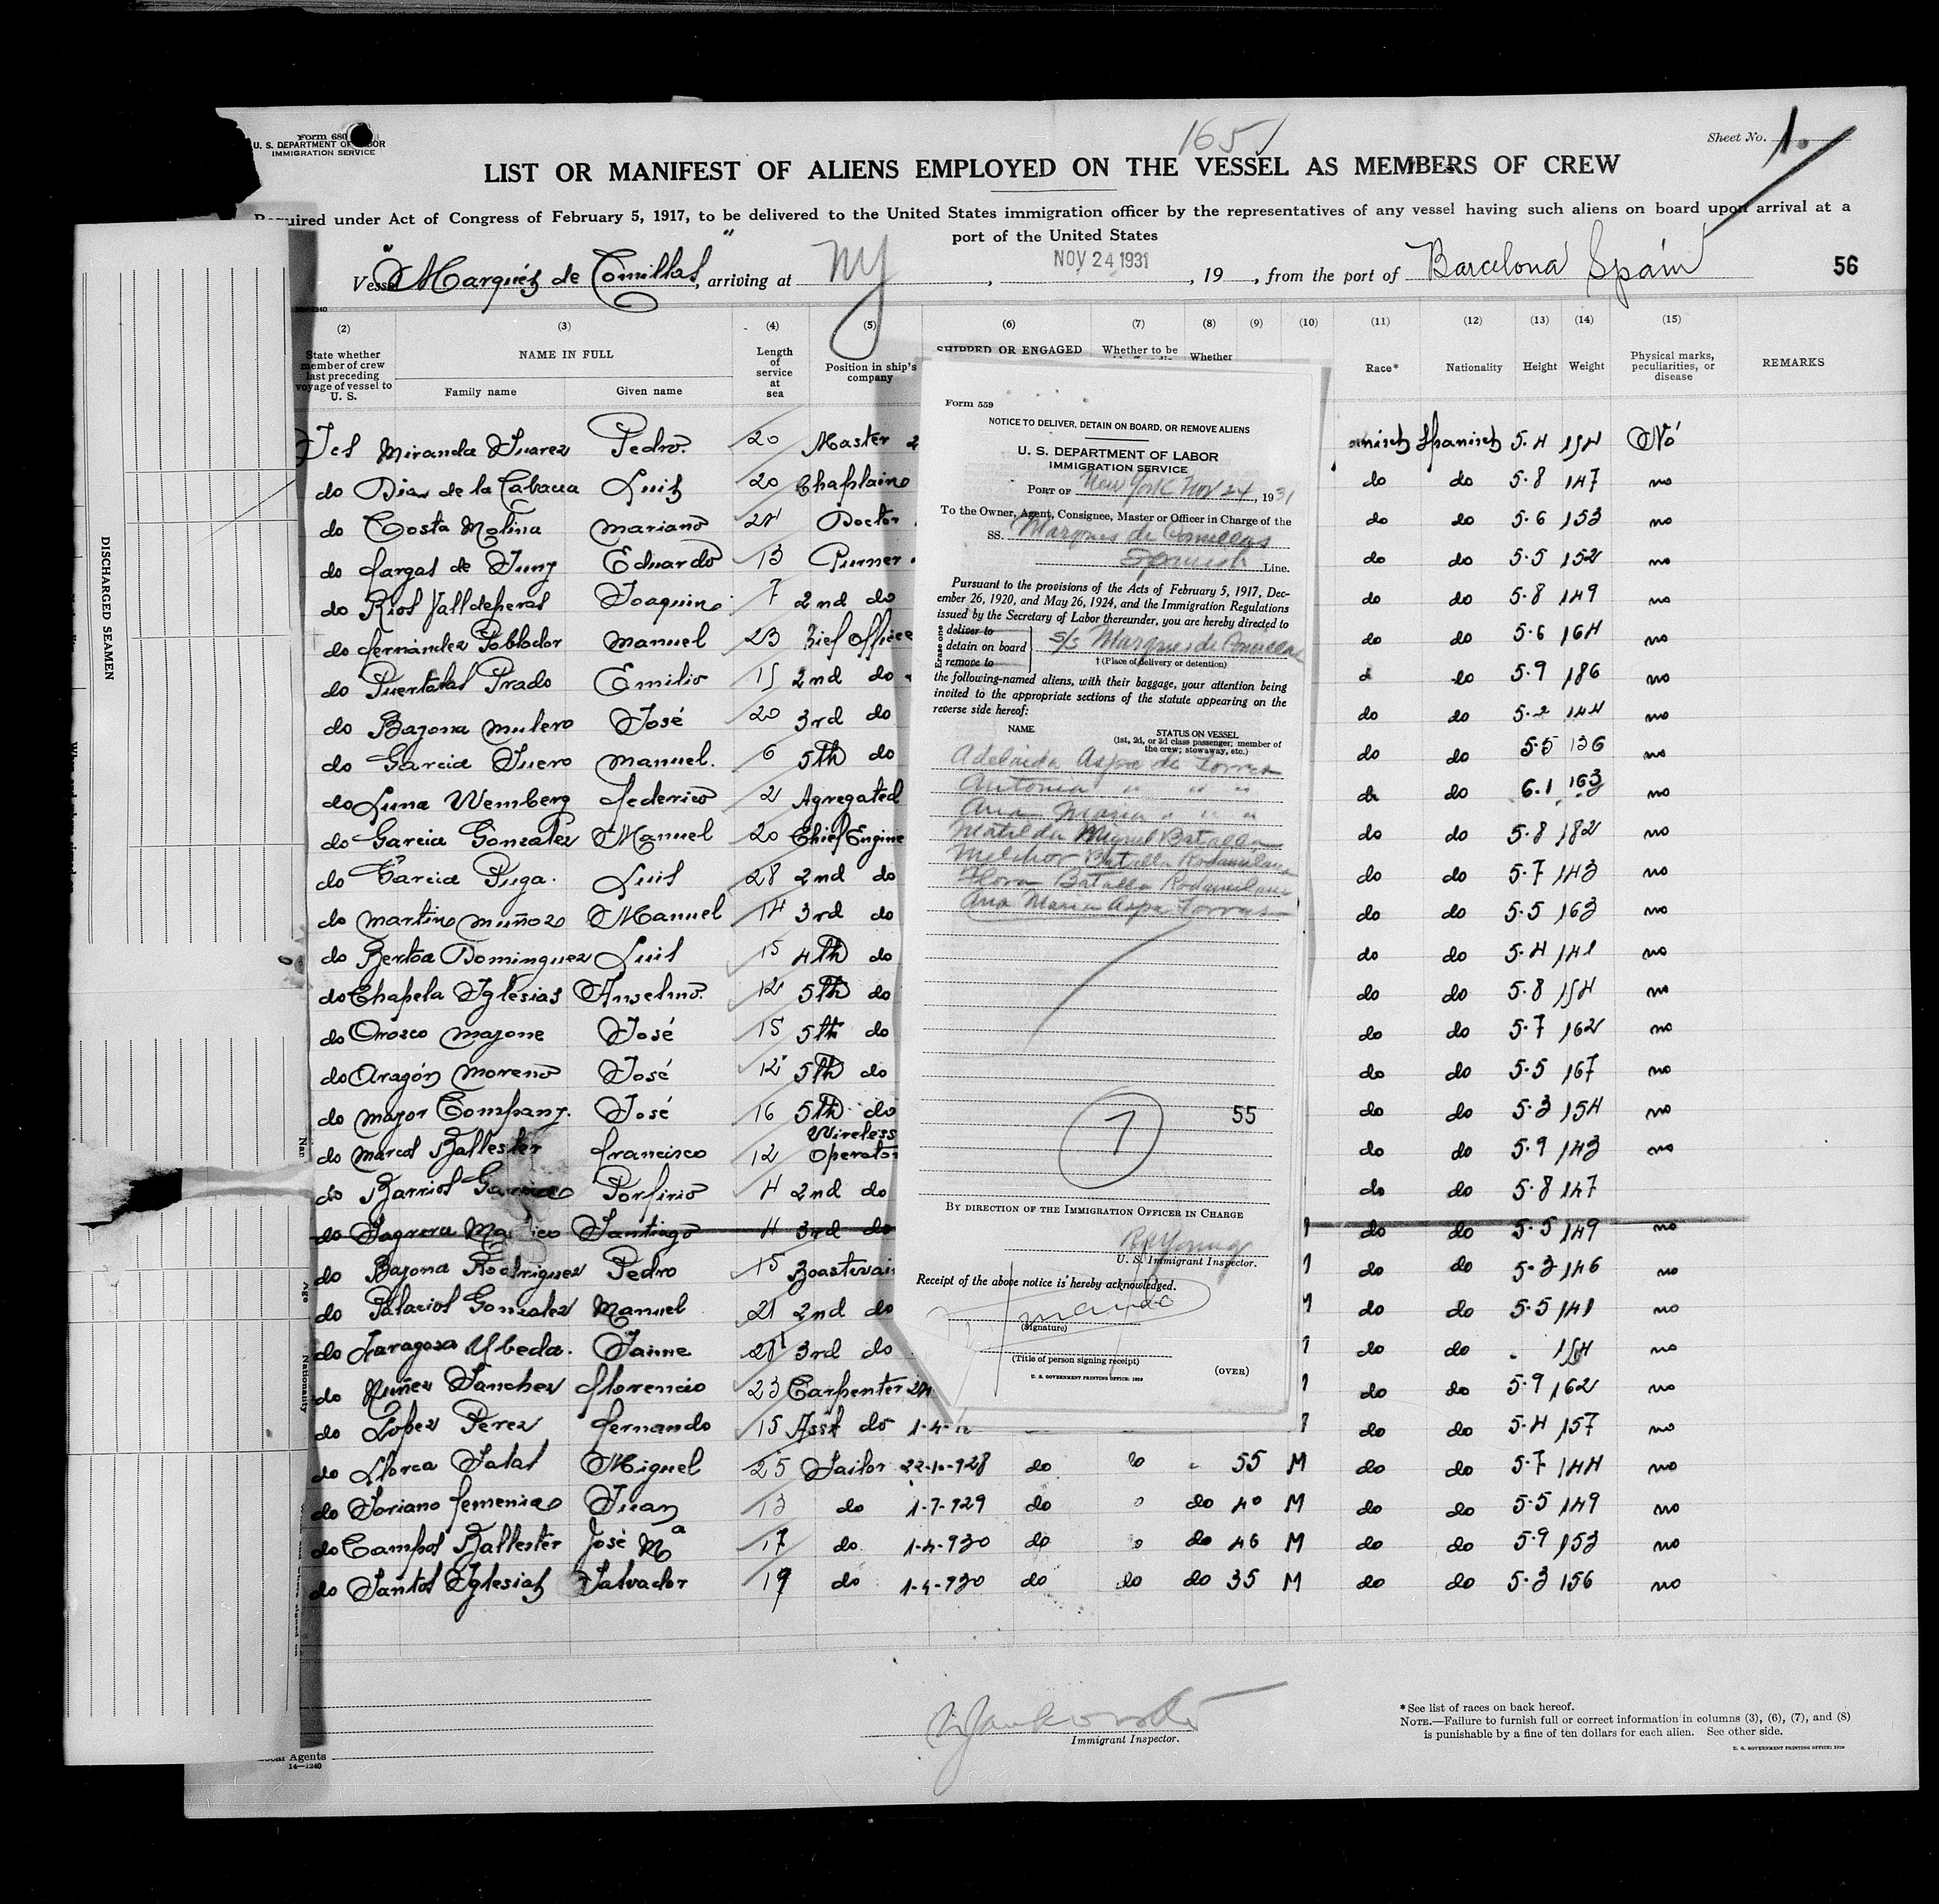 Form 680
U. S. DEPARTMENT OF LABOR
IMMIGRATION SERVICE
1651
Sheet No. 1.
LIST OR MANIFEST OF ALIENS EMPLOYED ON THE VESSEL AS MEMBERS OF CREW
Required under Act of Congress of February 5, 1917, to be delivered to the United States immigration officer by the representatives of any vessel having such aliens on board upon arrival at a
port of the United States
Vessel "Marqués de Comillas", arriving at NY, NOV 24 1931, 19 , from the port of Barcelona Spain
56
(2) (3) (4) (5) (6) (7) (8) (9) (10) (11) (12) (13) (14) (15)
State whether member of crew last preceding voyage of vessel to U. S.
NAME IN FULL
Family name Given name
Length of service at sea
Position in ship's company
SHIPPED OR ENGAGED
Whether to be
Whether
Race* Nationality Height Weight
Physical marks, peculiarities, or disease
REMARKS
DISCHARGED SEAMEN
Miranda Suarez Pedro. 20 Master Spanish 5.4 154 No
do Luis 20 Chaplain do do 5.8 147 no
do Costa Molina Mariano Doctor do do 5.6 153 no
do Eduardo 13 Purser do do 5.5 152 no
do Rios Valldeperas Joaquin 7 2nd do do do 5.8 149 no
do Fernandez Poblador Manuel 23 do do 5.6 164 no
do Puertolas Prado Emilio 15 2nd do do 5.9 186 no
do Bazona Mulero José 20 3rd do do do 5.2 144 no
do Garcia Suero Manuel. 6 5th do do do 5.5 136 no
do Luna Wemberg Federico 2 Agregated do do 6.1 163 no
do Garcia Gonzalez Manuel 20 Chief Engine do do 5.8 182 no
do Garcia Puga. Luis 28 2nd do do do 5.7 143 no
do Martino Muñozo Manuel 14 3rd do do do 5.5 163 no
do Bertoa Dominguez Luis 15 4th do do do 5.4 141 no
do Chapela Iglesias Anselmo. 12 5th do do do 5.8 154 no
do Orozco Mazone José 15 5th do do do 5.7 162 no
do Aragón Moreno José 12 5th do do do 5.5 167 no
do Mayor Company. José 16 5th do do do 5.3 154 no
do Marcos Ballester Francisco 12 Wireless Operator do do 5.9 143 no
do Barrios Garcia Porfirio 4 2nd do do do 5.8 147
do Sagrera Santiago 4 3rd do do do 5.5 149 no
do Bazona Rodriguez Pedro 15 do do 5.3 146 no
do Palacios Gonzalez Manuel 21 2nd do do do 5.5 141 no
do Zaragoza Ubeda. Jaime 3rd do do do 154 no
do Nuñez Sanchez Florencio 23 Carpenter do do 5.9 162 no
do Lopez Perez Fernando 15 Asst do do do 5.4 157 no
do Llorca Salas Miguel 25 Sailor 22-10-928 do 55 M do do 5.7 144 no
do Soriano Femenia Juan 13 do 1-7-929 do do 40 M do do 5.5 149 no
do Campos Ballester José Mª 17 do 1-4-930 do do 46 M do do 5.9 153 no
do Santos Iglesias Salvador 19 do 1-4-930 do do do 35 M do do 5.3 156 no
Form 559
NOTICE TO DELIVER, DETAIN ON BOARD, OR REMOVE ALIENS
U. S. DEPARTMENT OF LABOR
IMMIGRATION SERVICE
PORT OF New York Nov 24, 1931
To the Owner, Agent, Consignee, Master or Officer in Charge of the
SS. Marques de Comillas
Spanish Line.
Pursuant to the provisions of the Acts of February 5, 1917, Dec-
ember 26, 1920, and May 26, 1924, and the Immigration Regulations
issued by the Secretary of Labor thereunder, you are hereby directed to
Erase one
deliver to
detain on board
remove to
s/s Marques de Comillas
† (Place of delivery or detention)
the following-named aliens, with their baggage, your attention being
invited to the appropriate sections of the statute appearing on the
reverse side hereof:
NAME STATUS ON VESSEL
(1st, 2d, or 3d class passenger; member of
the crew; stowaway, etc.)
Adelaida Aspa de Torres
Antonia " " "
Ana Maria " " "
Matilda Miguel Batalla
Melchor Batalla
Flora Batalla
Ana Maria Aspa Torres
7
55
BY DIRECTION OF THE IMMIGRATION OFFICER IN CHARGE
U. S. Immigrant Inspector.
Receipt of the above notice is hereby acknowledged.
(Signature)
(Title of person signing receipt)
(OVER)
U. S. GOVERNMENT PRINTING OFFICE: 1929
Immigrant Inspector.
Local Agents
14—1240
* See list of races on back hereof.
NOTE.—Failure to furnish full or correct information in columns (3), (6), (7), and (8)
is punishable by a fine of ten dollars for each alien. See other side.
U. S. GOVERNMENT PRINTING OFFICE: 1929